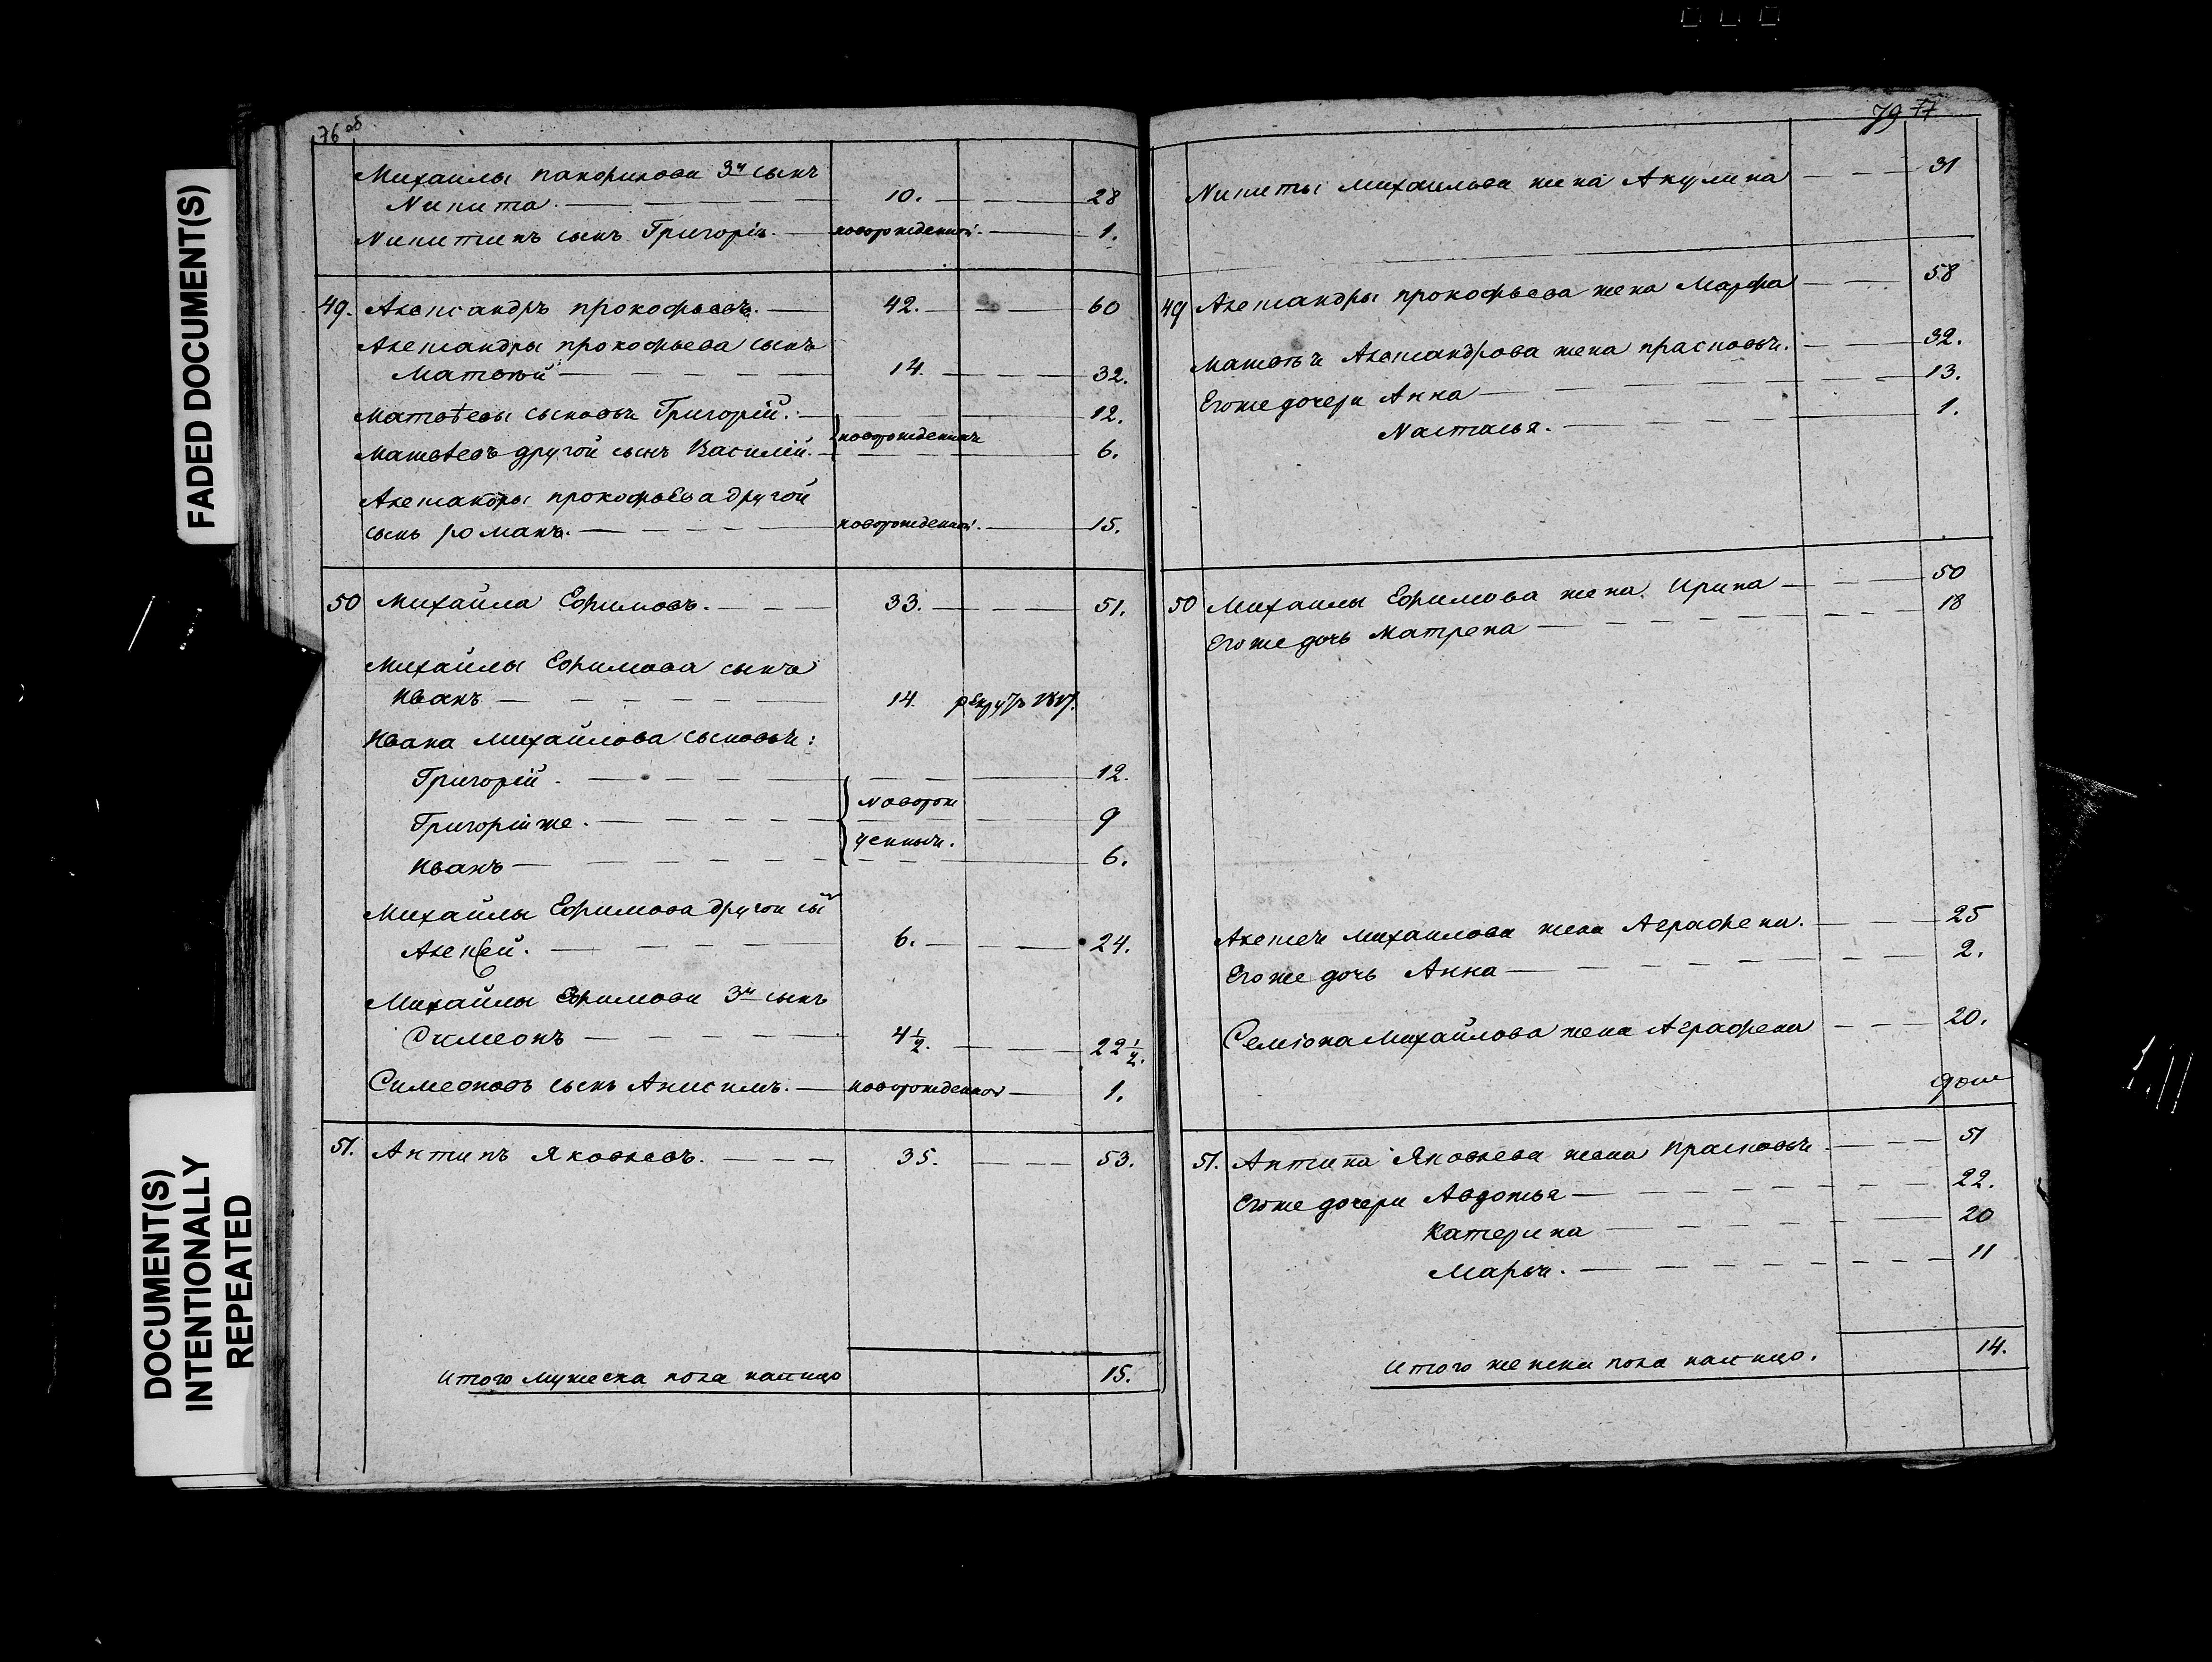 FADED DOCUMENT(S)
DOCUMENT(S)
INTENTIONALLY
REPEATED
76 об
Михаилы панфилова 3й сынъ
Никита. 10. 28
Никитинъ сынъ Григорій. новорожденной. 1.
49. Александръ прокофьевъ. 42. 60
Александры прокофьева сынъ
Матвѣй 14. 32.
Матвѣевы сыновьи Григорій. 12.
новорожденныи
Матвѣевъ другой сынъ Василій. 6.
Александры прокофьева другой
сынъ романъ. новорожденной. 15.
50 Михаила Ефимовъ. 33. 51.
Михаилы Ефимова сынъ
Иванъ 14. рекрутъ 1817.
Ивана Михайлова сыновьи:
Григорій. 12.
Новорож
Григорій же. 9
денныи.
Иванъ 6.
Михаилы Ефимова другои сы
Алексей. 6. 24.
Михаилы Ефимова 3й сынъ
Симеонъ 4 1/2. 22 1/2.
Симеоновъ сынъ Анисимъ. новорожденной 1.
51. Антипъ Яковлевъ. 35. 53.
Итого мужеска пола налицо 15.
79 77
Никиты Михаилова жена Акулина 31
49 Александры прокофьева жена Марфа 58
Матвѣи Александрова жена прасковьи. 32.
Егоже дочери Анна 13.
Настасья. 1.
50 Михаилы Ефимова жена Ирина 50
Егоже дочь Матрена 18
Алексеи Михаилова жена Аграфена. 25
Егоже дочь Анна 2.
Семіона Михайлова жена Аграфена 20.
51. Антипа Яковлева жена Прасковьи 51
Егоже дочери Авдотья 22.
Катерина 20
Марьи. 11
Итого женска пола налицо. 14.